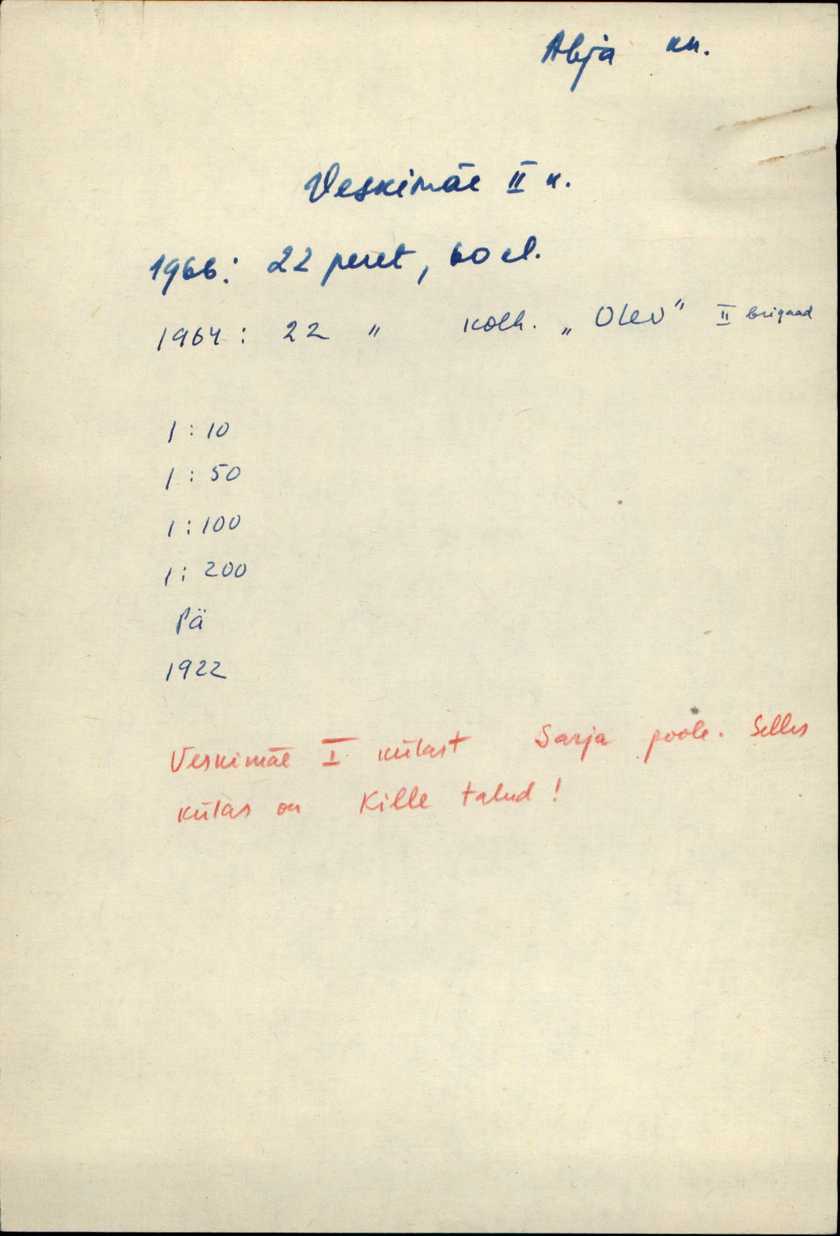 Abja kn.
Veskimäe II k.
1966: 22 peret, 60 el.
1964: 22 " kolh. „Olev" II brigaad
1:10
1:50
1:100
1:200
Pä
1922
Veskimäe I külast Sarja poole. Selles
külas on Kille talud!